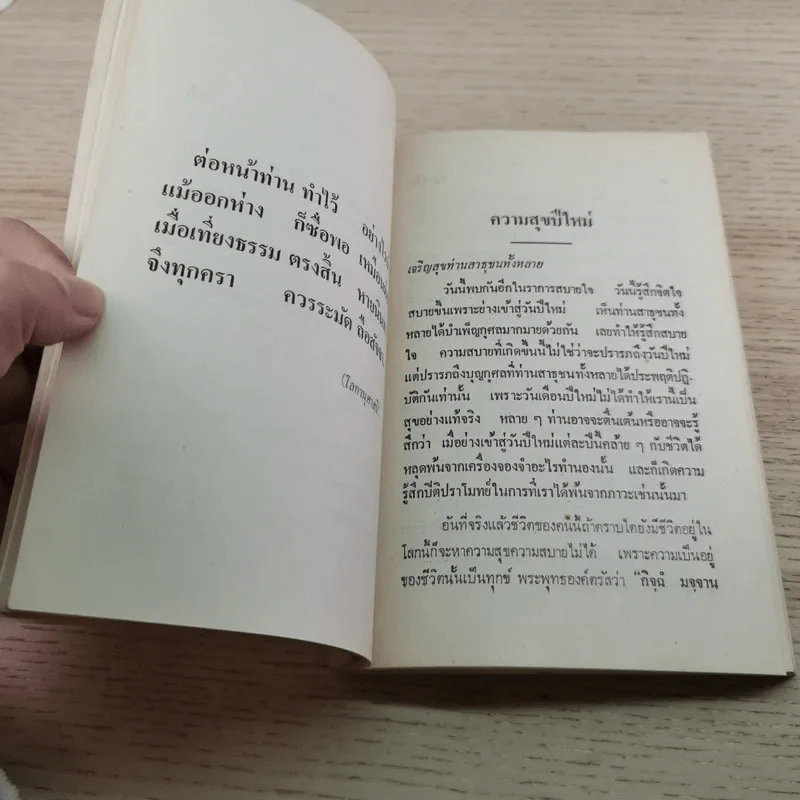 ต่อหน้าท่าน ทำไว้
แม้ออกห่าง ก็ซื่อพอ
เมื่อเที่ยงธรรม ตรงสิ้น
จึงทุกครา ควรระมัด ถือสัจ
ความสุขปีใหม่
เจริญสุขท่านสาธุชนทั้งหลาย
วันนี้พบกันอีกในราการสบายใจ วันนี้รู้สึกจิตใจ
สบายขึ้นเพราะย่างเข้าสู่วันปีใหม่ เห็นท่านสาธุชนทั้ง
หลายได้บำเพ็ญกุศลมากมายด้วยกัน เลยทำให้รู้สึกสบาย
ใจ ความสบายที่เกิดขึ้นนี้ไม่ใช่ว่าจะปรารภถึงวันปีใหม่
แต่ปรารภถึงบุญกุศลที่ท่านสาธุชนทั้งหลายได้ประพฤติปฏิ-
บัติกันเท่านั้น เพราะวันเดือนปีใหม่ไม่ได้ทำให้เรานี้เป็น
สุขอย่างแท้จริง หลาย ๆ ท่านอาจจะตื่นเต้นหรืออาจจะรู้
สึกว่า เมื่อย่างเข้าสู่วันปีใหม่แต่ละปีนี้คล้าย ๆ กับชีวิตได้
หลุดพ้นจากเครื่องจองจำอะไรทำนองนั้น และก็เกิดความ
รู้สึกปีติปราโมทย์ในการที่เราได้พ้นจากภาวะเช่นนั้นมา
อันที่จริงแล้วชีวิตของคนนี้ถ้าตราบใดยังมีชีวิตอยู่ใน
โลกนี้ก็จะหาความสุขความสบายไม่ได้ เพราะความเป็นอยู่
ของชีวิตนั้นเป็นทุกข์ พระพุทธองค์ตรัสว่า "กิจฺฉํ มจฺจาน